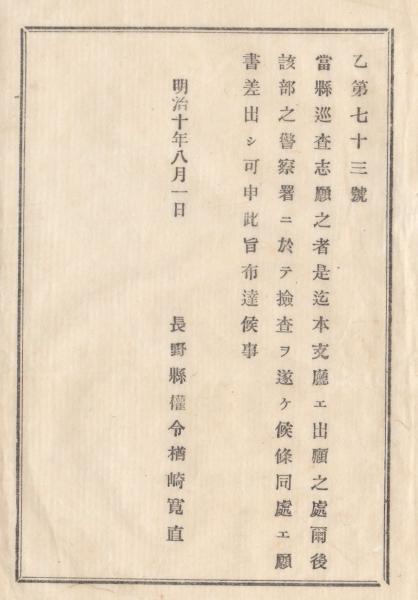 乙第七十三號
當縣巡査志願之者是迄本支廳エ出願之處爾後
該部之警察署ニ於テ撿査ヲ遂ケ候條同處エ願
書差出シ可申此旨布達候事
明治十年八月一日
長野縣權令楢崎寛直